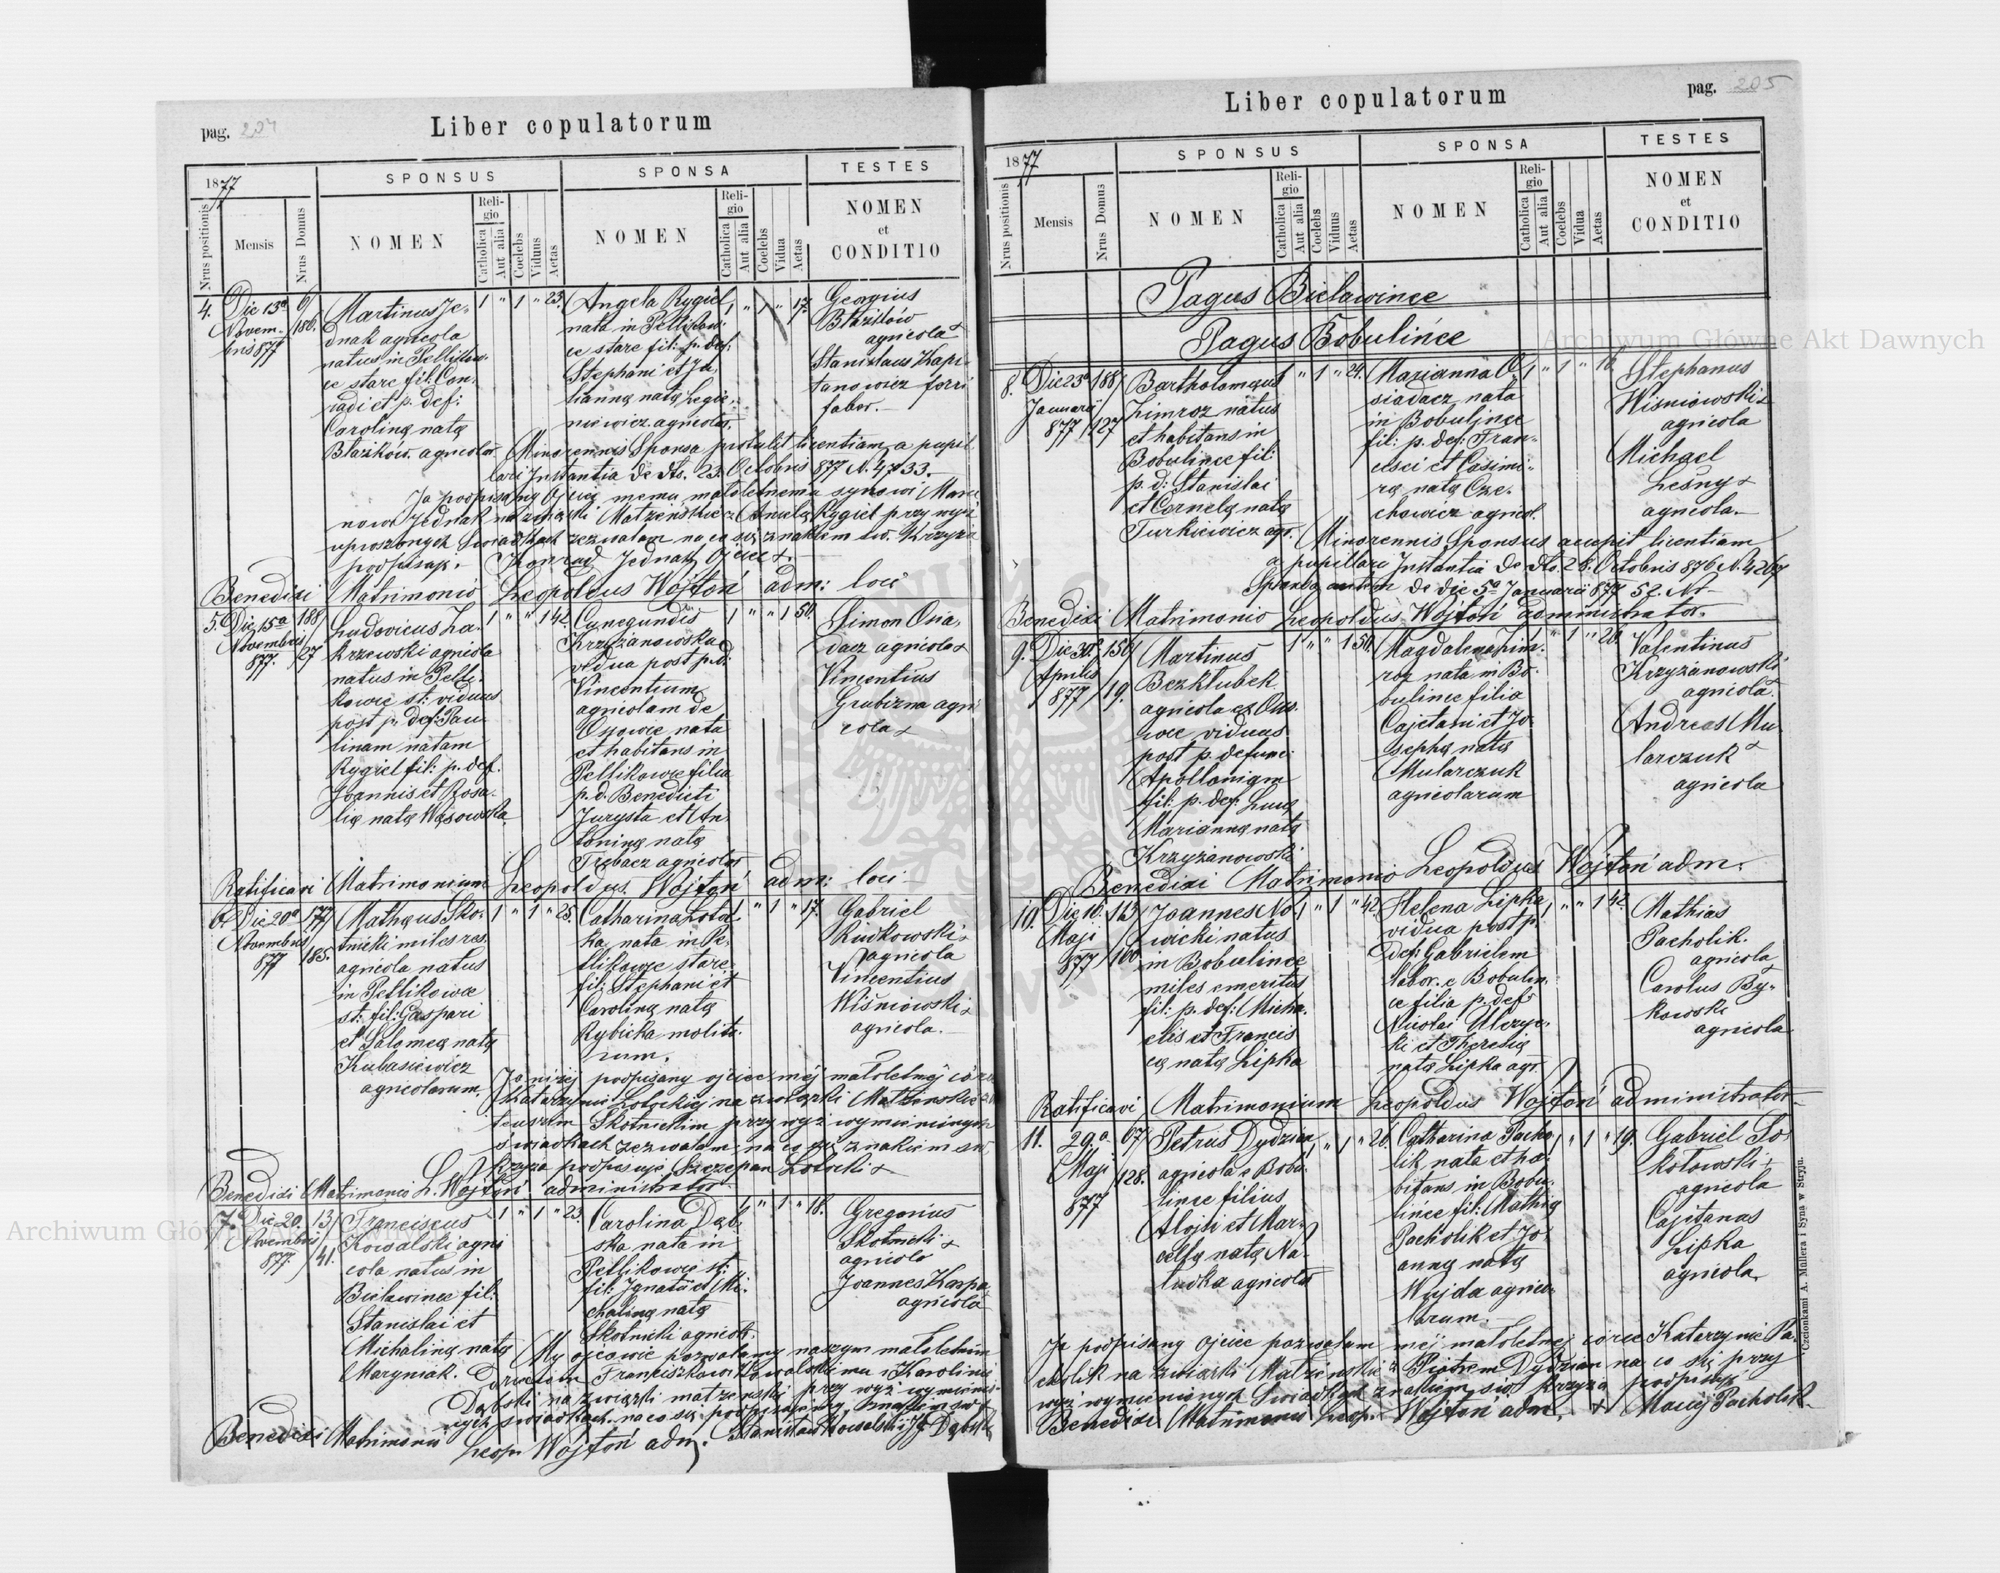 pag. 204
Liber copulatorum
1877
SPONSUS
SPONSA
TESTES
Nrus positionis
Mensis
Nrus Domus
NOMEN
Religio
Catholica
Aut alia
Coelebs
Viduus
Aetas
NOMEN
Religio
Catholica
Aut alia
Coelebs
Vidua
Aetas
NOMEN
et
CONDITIO
4. Die 13a
Novem-
bris 877
6/
186.
Martinus Je-
dnak agricola
natus in Petliko-
ce stare fil: Con-
radi et p. def:
Carolina nata
Błażków. agricolar.
1 " 1 " 23.
Angela Rygiel
nata in Petlikow-
ce stare fil: p. def:
Stephani et Ju-
lianna nata
agricolar.
1 " 1 " 17.
Georgius
Błażków
agricola +
Stanislaus Kapi-
tanowicz ferri
faber.
Minorennis Sponsa protulit licentiam a pupil-
lari Instantia de dto. 23. Octobris 877 N. 4733.
Ja podpisany Ojciec memu małoletnemu synowi Marci-
nowi Jednak na związki Małżeńskie z Anielą Rygiel przy wyż
uproszonych świadkach zezwalam na co się znakiem św. Krzyża
podpisuję. Konrad Jednak Ojciec +
Benedixi Matrimonio Leopoldus Wojtoń adm: loci
5. Die 15a
Novembris
877.
188/
27
Ludovicus Za-
krzewski agricola
natus in Petli-
kowce st: viduus
post p. def: Pau-
linam natam
Rygiel fil: p. def.
Joannis et Rosa-
lia nata Wąsowska.
1 " " 1 42.
Cunegundis
Krzyżanowska
vidua post p.d:
Vincentium
agricolam de
Ossowce nata
et habitans in
Petlikowce filia
p.d. Benedicti
Jurysta et An-
tonina nata
Trębacz agricolar.
1 " " 1 50.
Simon Osia-
dacz agricola +
Vincentius
Grabizna agri-
cola +
Ratificavi Matrimonium Leopoldus Wojtoń adm: loci
6. Die 20a
Novembris
877
177/
185.
Mathaeus Sko-
tnicki miles res.
agricola natus
in Petlikowce
st: fil: Gaspari
et Salomea nata
Kubasiewicz
agricolarum.
1 " 1 " 25.
Catharina Łotoc-
ka nata in Pe-
tlikowce stare
fil: Stephani et
Carolina nata
Rybicka molito-
rum.
1 " 1 " 17.
Gabriel
Rudkowski +
agricola
Vincentius
Wiśniowski +
agricola.
Ja niżej podpisany ojciec mej małoletnej córce
Katarzynie Łotockiej na związki Małżeńskie z Ma-
teuszem Skotnickim przy wyż wymienionych
świadkach zezwalam na co się znakiem św.
Krzyża podpisuję Szczepan Łotocki +
Benedixi Matrimonio L. Wojtoń administrator
7. Die 20.
Novembris
877.
13/
41.
Franciscus
Kowalski agri-
cola natus in
Bielawince fil:
Stanislai et
Michalina nata
Maryniak.
1 " 1 " 23.
Carolina Dąb-
ska nata in
Petlikowce st:
fil: Ignatii et Mi-
chalina nata
Skotnicki agricolr.
" 1 " 18.
Gregorius
Skotnicki +
agricola
Joannes Karpa
agricola
My ojcowie pozwalamy naszym małoletnim
dzieciom Franciszkowi Kowalskiemu i Karolinie
Dąbski na związki małżeński przy wyż wymienio-
nych świadkach na co się podpisujemy
Stanisław Kowalski
Benedixi Matrimonio Leop. Wojtoń adm.
pag. 205
Liber copulatorum
1877
SPONSUS
SPONSA
TESTES
Nrus positionis
Mensis
Nrus Domus
NOMEN
Religio
Catholica
Aut alia
Coelebs
Viduus
Aetas
NOMEN
Religio
Catholica
Aut alia
Coelebs
Vidua
Aetas
NOMEN
et
CONDITIO
Pagus Bielawince
Pagus Bobulińce
8. Die 23a
Januarii
877
188/
127
Bartholomaeus
Zimroz natus
et habitans in
Bobulince fil:
p. d: Stanislai
et Cornela nata
Turkiewicz agr.
" 1 " 24.
Marianna O-
siadacz nata
in Bobulince
fil: p. def: Fran-
cisci et Casimi-
ra nata Cze-
chowicz agricol.
1 " 1 " 18.
Stephanus
Wiśniowski +
agricola
Michael
Leśny +
agricola.
Minorennis Sponsus accepit licentiam
a pupillari Instantia de dto. 28. Octobris 876 N. 4267
Sponsa autem de die 5a Januarii 877 52. Nr
Benedixi Matrimonio Leopoldus Wojtoń administrator.
9. Die 30a
Aprilis
877
150/
19.
Martinus
Bezkłubek
agricola ex Osso-
wce viduus
post p. defunc:
Apolloniam
fil: p. def: Luca
Marianna nata
Krzyżanowski
1 " " 1 50.
Magdalena Zim-
roz nata in Bo-
bulince filia
Cajetani et Jo-
sepha nata
Mularczuk
agricolarum
1 " 1 " 20.
Valentinus
Krzyżanowski
agricola +
Andreas Mu-
larczuk +
agricola
Benedixi Matrimonio Leopoldus Wojtoń adm.
10. Die 10.
Maji
877
113/
100
Joannes No-
wicki natus
in Bobulince
miles emeritus
fil: p. def: Micha-
elis et Francis-
ca nata Lipka
1 " 1 " 42.
Helena Lipka
vidua post p.
def: Gabrielem
labor. e Bobulin-
ce filia p. def:
Nicolai Ulczyc-
ki et Theresia
nata Lipka agr.
1 " " 1 42.
Mathias
Pacholik.
agricola +
Carolus By-
kowski
agricola
Ratificavi Matrimonium Leopoldus Wojtoń administrator
11. 29a
Maji
877
67/
128.
Petrus Dydzian
agricola e Bobu-
lince filius
Alojsi et Mar-
cella nata Na-
ludka agricolar
1 " 1 " 26.
Catharina Pacho-
lik nata et ha-
bitans in Bobu-
lince fil: Mathia
Pacholik et Jo-
anna nata
Wujda agrico-
larum.
1 " 1 " 19.
Gabriel So-
kołowski +
agricola
Cajetanus
Lipka
agricola
Ja podpisany Ojciec pozwalam mej małoletnej córce Katarzynie Pa-
cholik na związki Małżeńskie z Piotrem Dydzian na co się przy
wyż wymienionych świadkach znakiem św. Krzyża podpisuję
Benedixi Matrimonio Leop. Wojtoń adm. + Maciej Pacholik.
Czcionkami A. Müllera i Syna w Stryju.
Archiwum Główne Akt Dawnych
Archiwum Główne Akt Dawnych